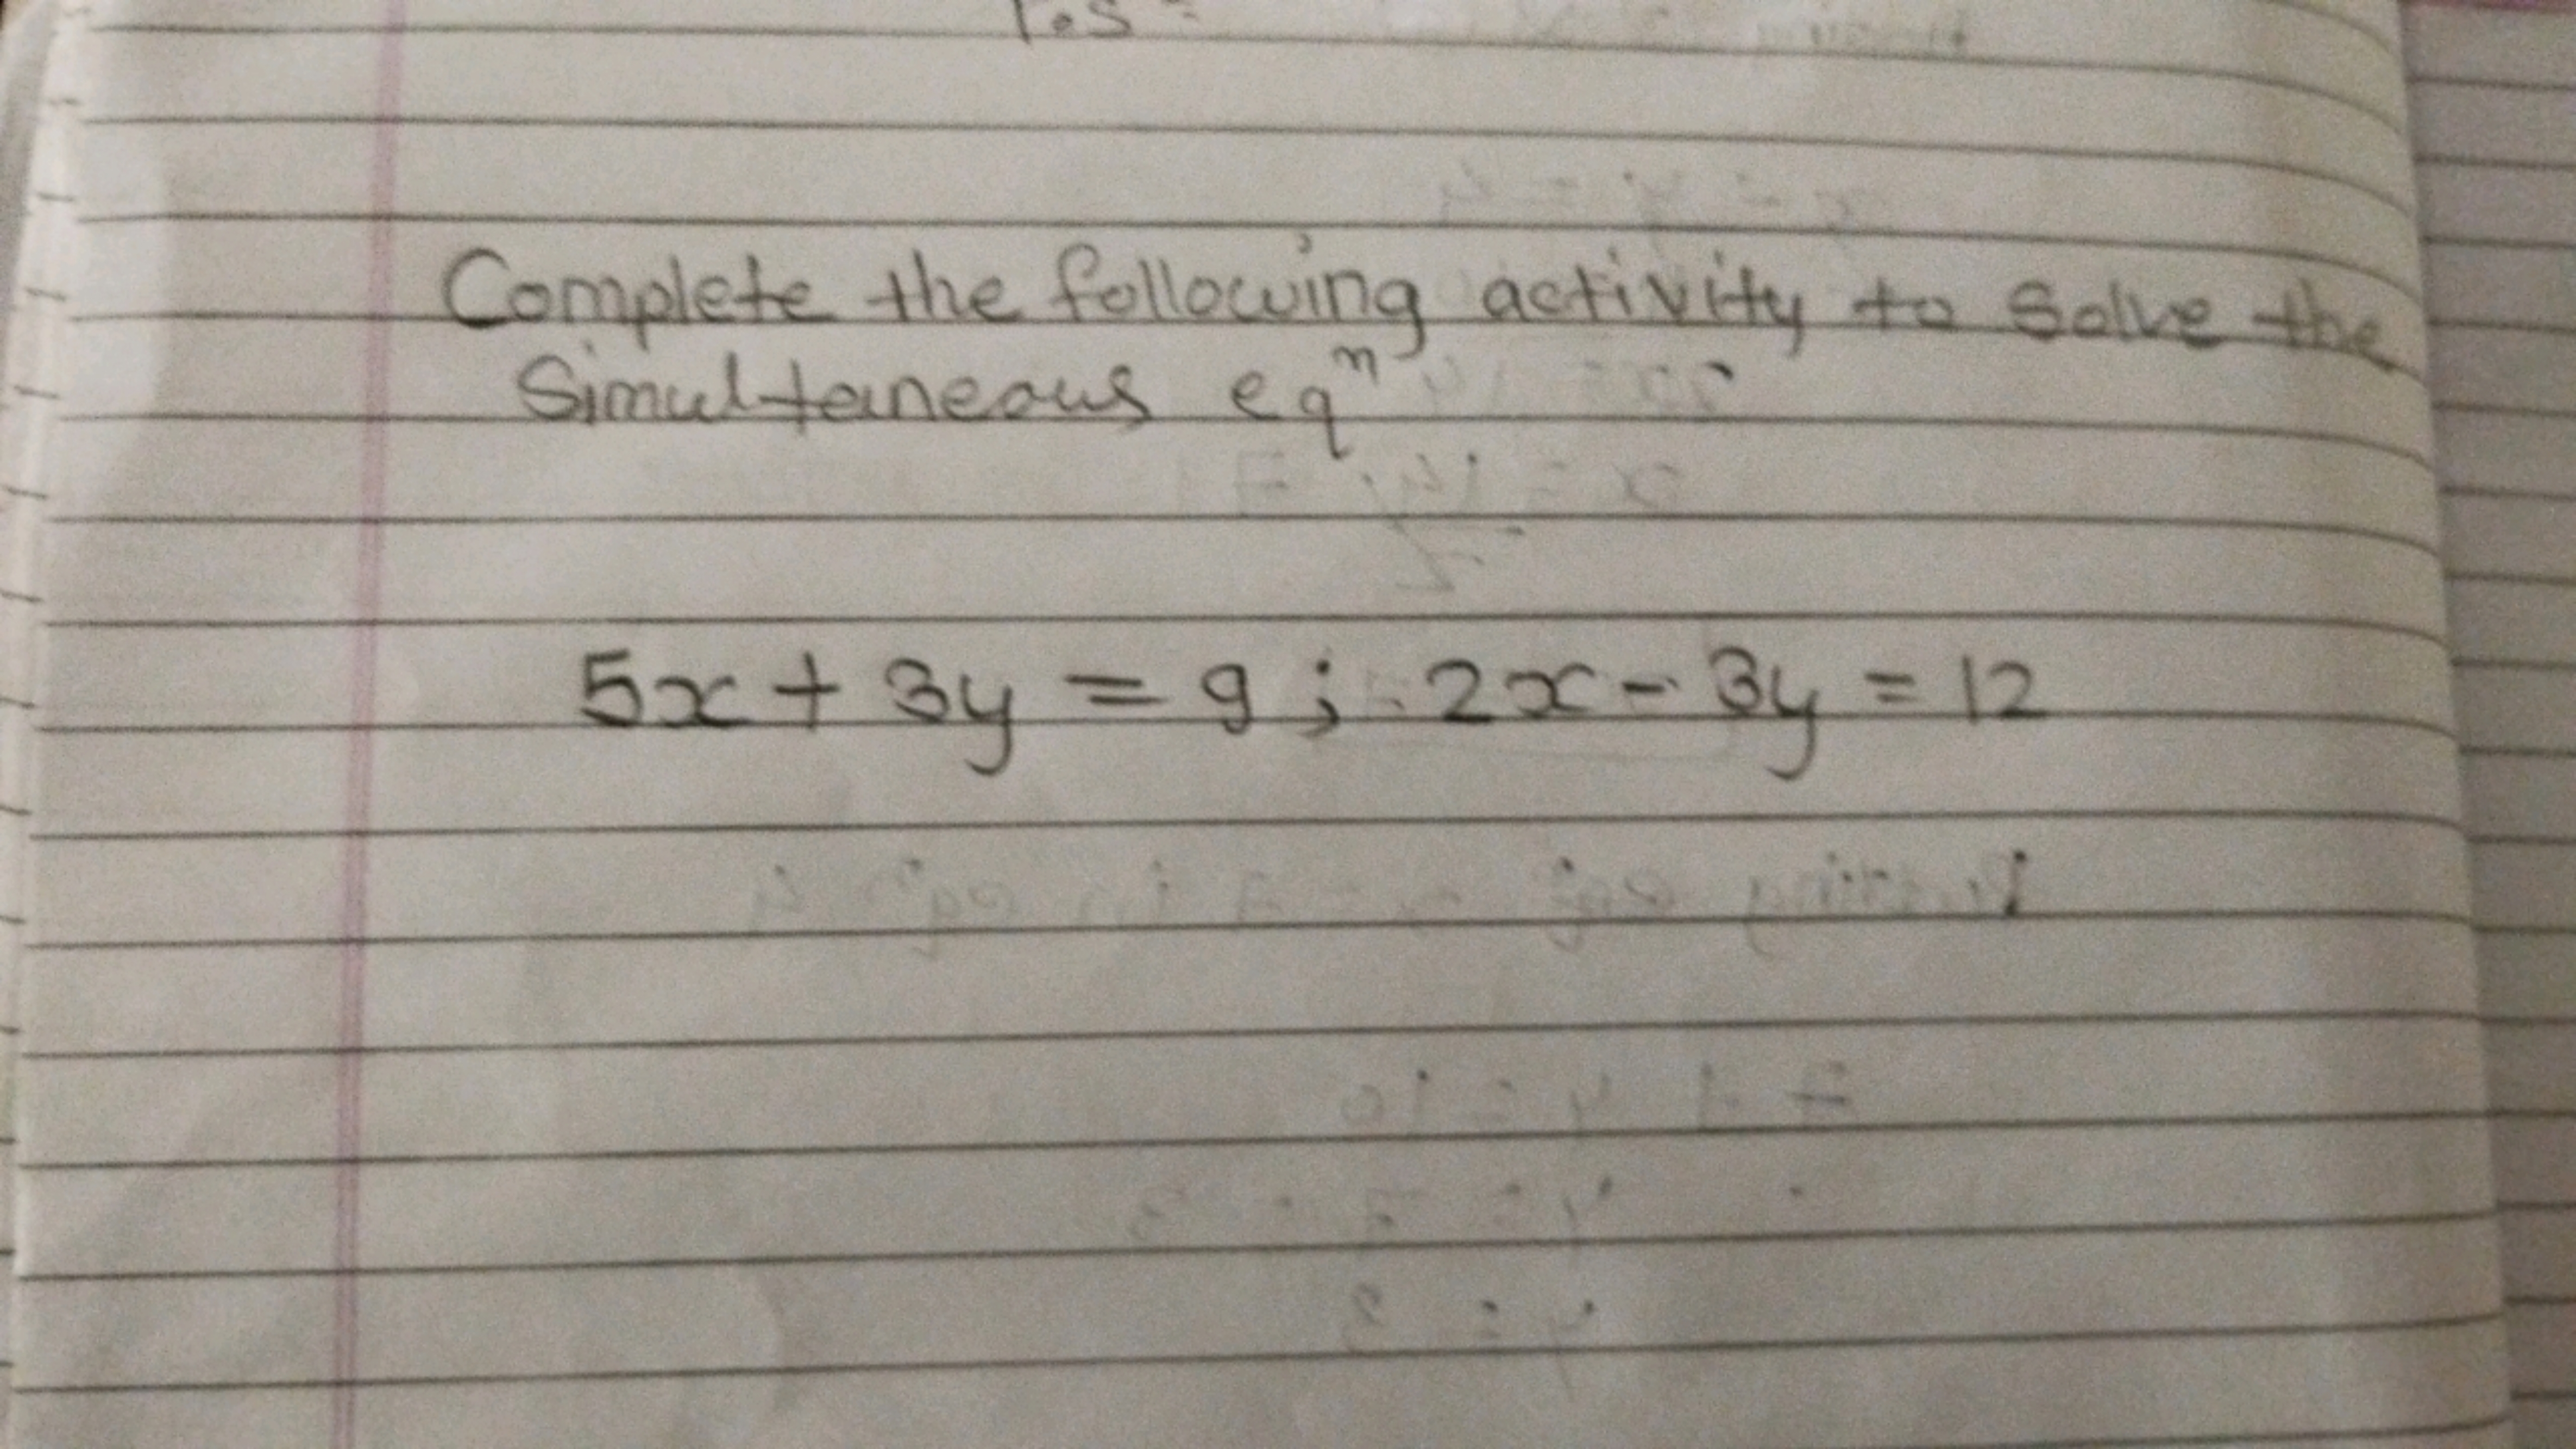 Complete the following activity to solve the
Simultaneous eqⁿ
5x + 3y = 9 ; 2x - 3y = 12